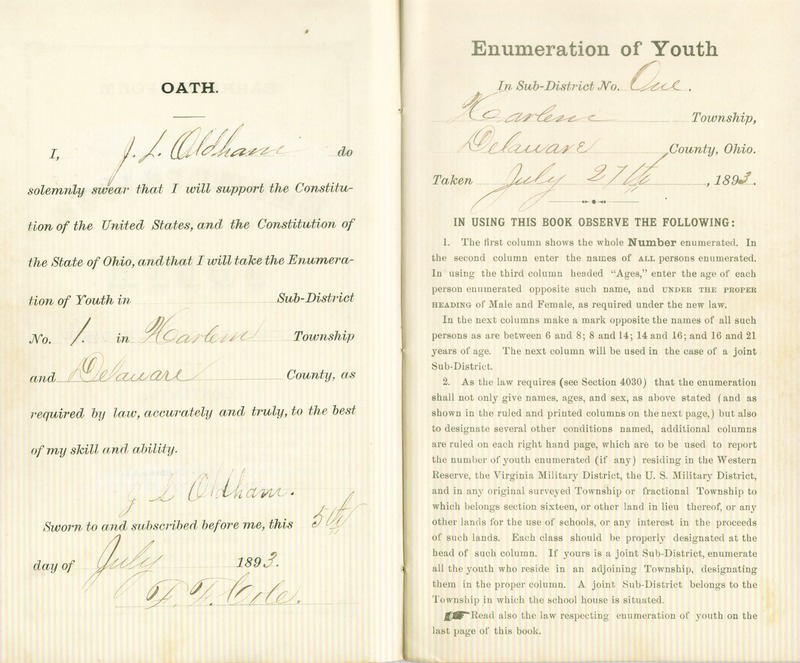 OATH.
I, J. L. Oldham do
solemnly swear that I will support the Constitu-
tion of the United States, and the Constitution of
the State of Ohio, and that I will take the Enumera-
tion of Youth in Sub-District
No. 1. in Harlem Township
and Delaware County, as
required by law, accurately and truly, to the best
of my skill and ability.
J L Oldham.
Sworn to and subscribed before me, this 5th
day of July 1893.
T. T. Cole.
Enumeration of Youth
In Sub-District No. One.
Harlem Township,
Delaware County, Ohio.
Taken July 27th, 1893.
IN USING THIS BOOK OBSERVE THE FOLLOWING:
1. The first column shows the whole Number enumerated. In
the second column enter the names of ALL persons enumerated.
In using the third column headed "Ages," enter the age of each
person enumerated opposite such name, and UNDER THE PROPER
HEADING of Male and Female, as required under the new law.
In the next columns make a mark opposite the names of all such
persons as are between 6 and 8; 8 and 14; 14 and 16; and 16 and 21
years of age. The next column will be used in the case of a joint
Sub-District.
2. As the law requires (see Section 4030) that the enumeration
shall not only give names, ages, and sex, as above stated (and as
shown in the ruled and printed columns on the next page,) but also
to designate several other conditions named, additional columns
are ruled on each right hand page, which are to be used to report
the number of youth enumerated (if any) residing in the Western
Reserve, the Virginia Military District, the U. S. Military District,
and in any original surveyed Township or fractional Township to
which belongs section sixteen, or other land in lieu thereof, or any
other lands for the use of schools, or any interest in the proceeds
of such lands. Each class should be properly designated at the
head of such column. If yours is a joint Sub-District, enumerate
all the youth who reside in an adjoining Township, designating
them in the proper column. A joint Sub-District belongs to the
Township in which the school house is situated.
Read also the law respecting enumeration of youth on the
last page of this book.